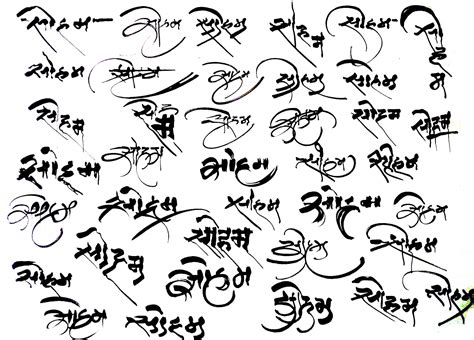 सोहम सोहम सोहम सोहम सोहम सोहम
सोहम सोहम सोहम सोहम सोहम सोहम
सोहम सोहम सोहम सोहम सोहम सोहम
सोहम सोहम सोहम सोहम सोहम
सोहम सोहम सोहम सोहम सोहम
सोहम सोहम सोहम सोहम
सोहम सोहम सोहम सोहम सोहम
सोहम सोहम